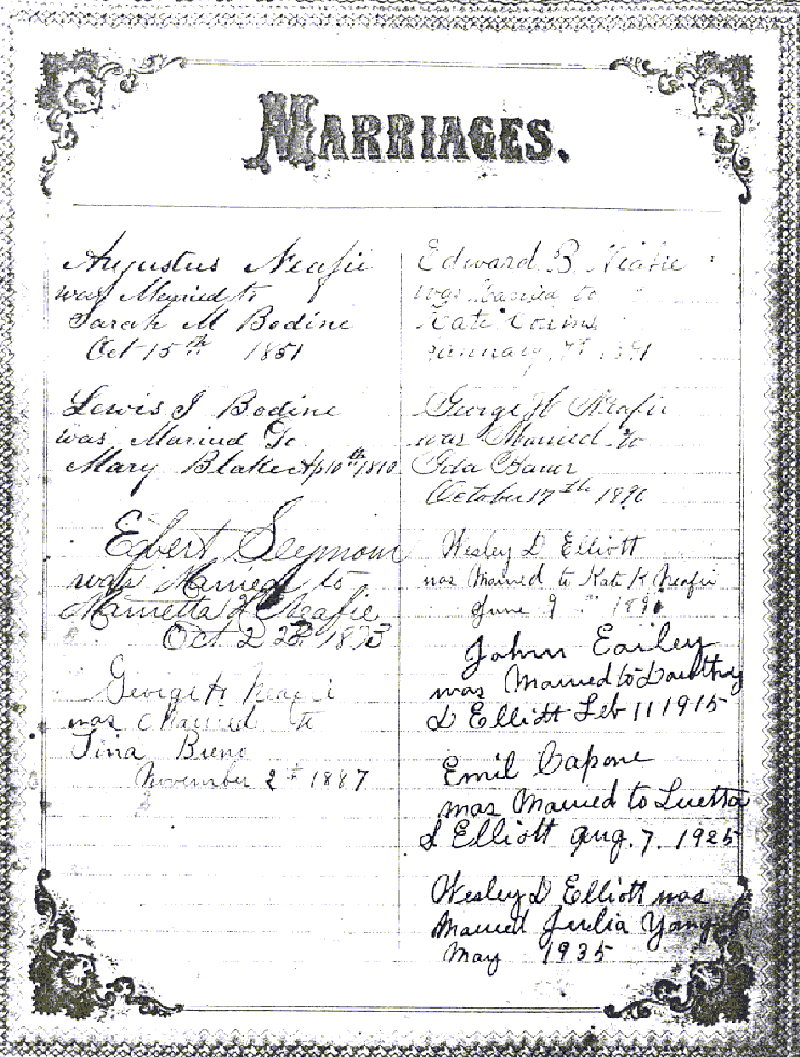 MARRIAGES.
Augustus Neafie
was Married to
Sarah M Bodine
Oct 15th 1851
Lewis J Bodine
was Married To
Mary Blake Ap 10th 1810
Egbert Seymour
was Married to
Marietta H Neafie
Oct 22d 1873
George H Neafie
was Married to
Tina
November 2nd 1887
Edward B Neafie
was Married to
Kate
January 7th 1891
George H Neafie
was Married to
Ida
October 17th 1890
Wesley D Elliott
was Married to Kate K Neafie
June 9th 189
John Earley
was Married to Dorothy
D Elliott Feb 11 1915
Emil Capone
was Married to Luetta
L Elliott Aug. 7. 1925
Wesley D Elliott was
Married Julia Yong
May 1935